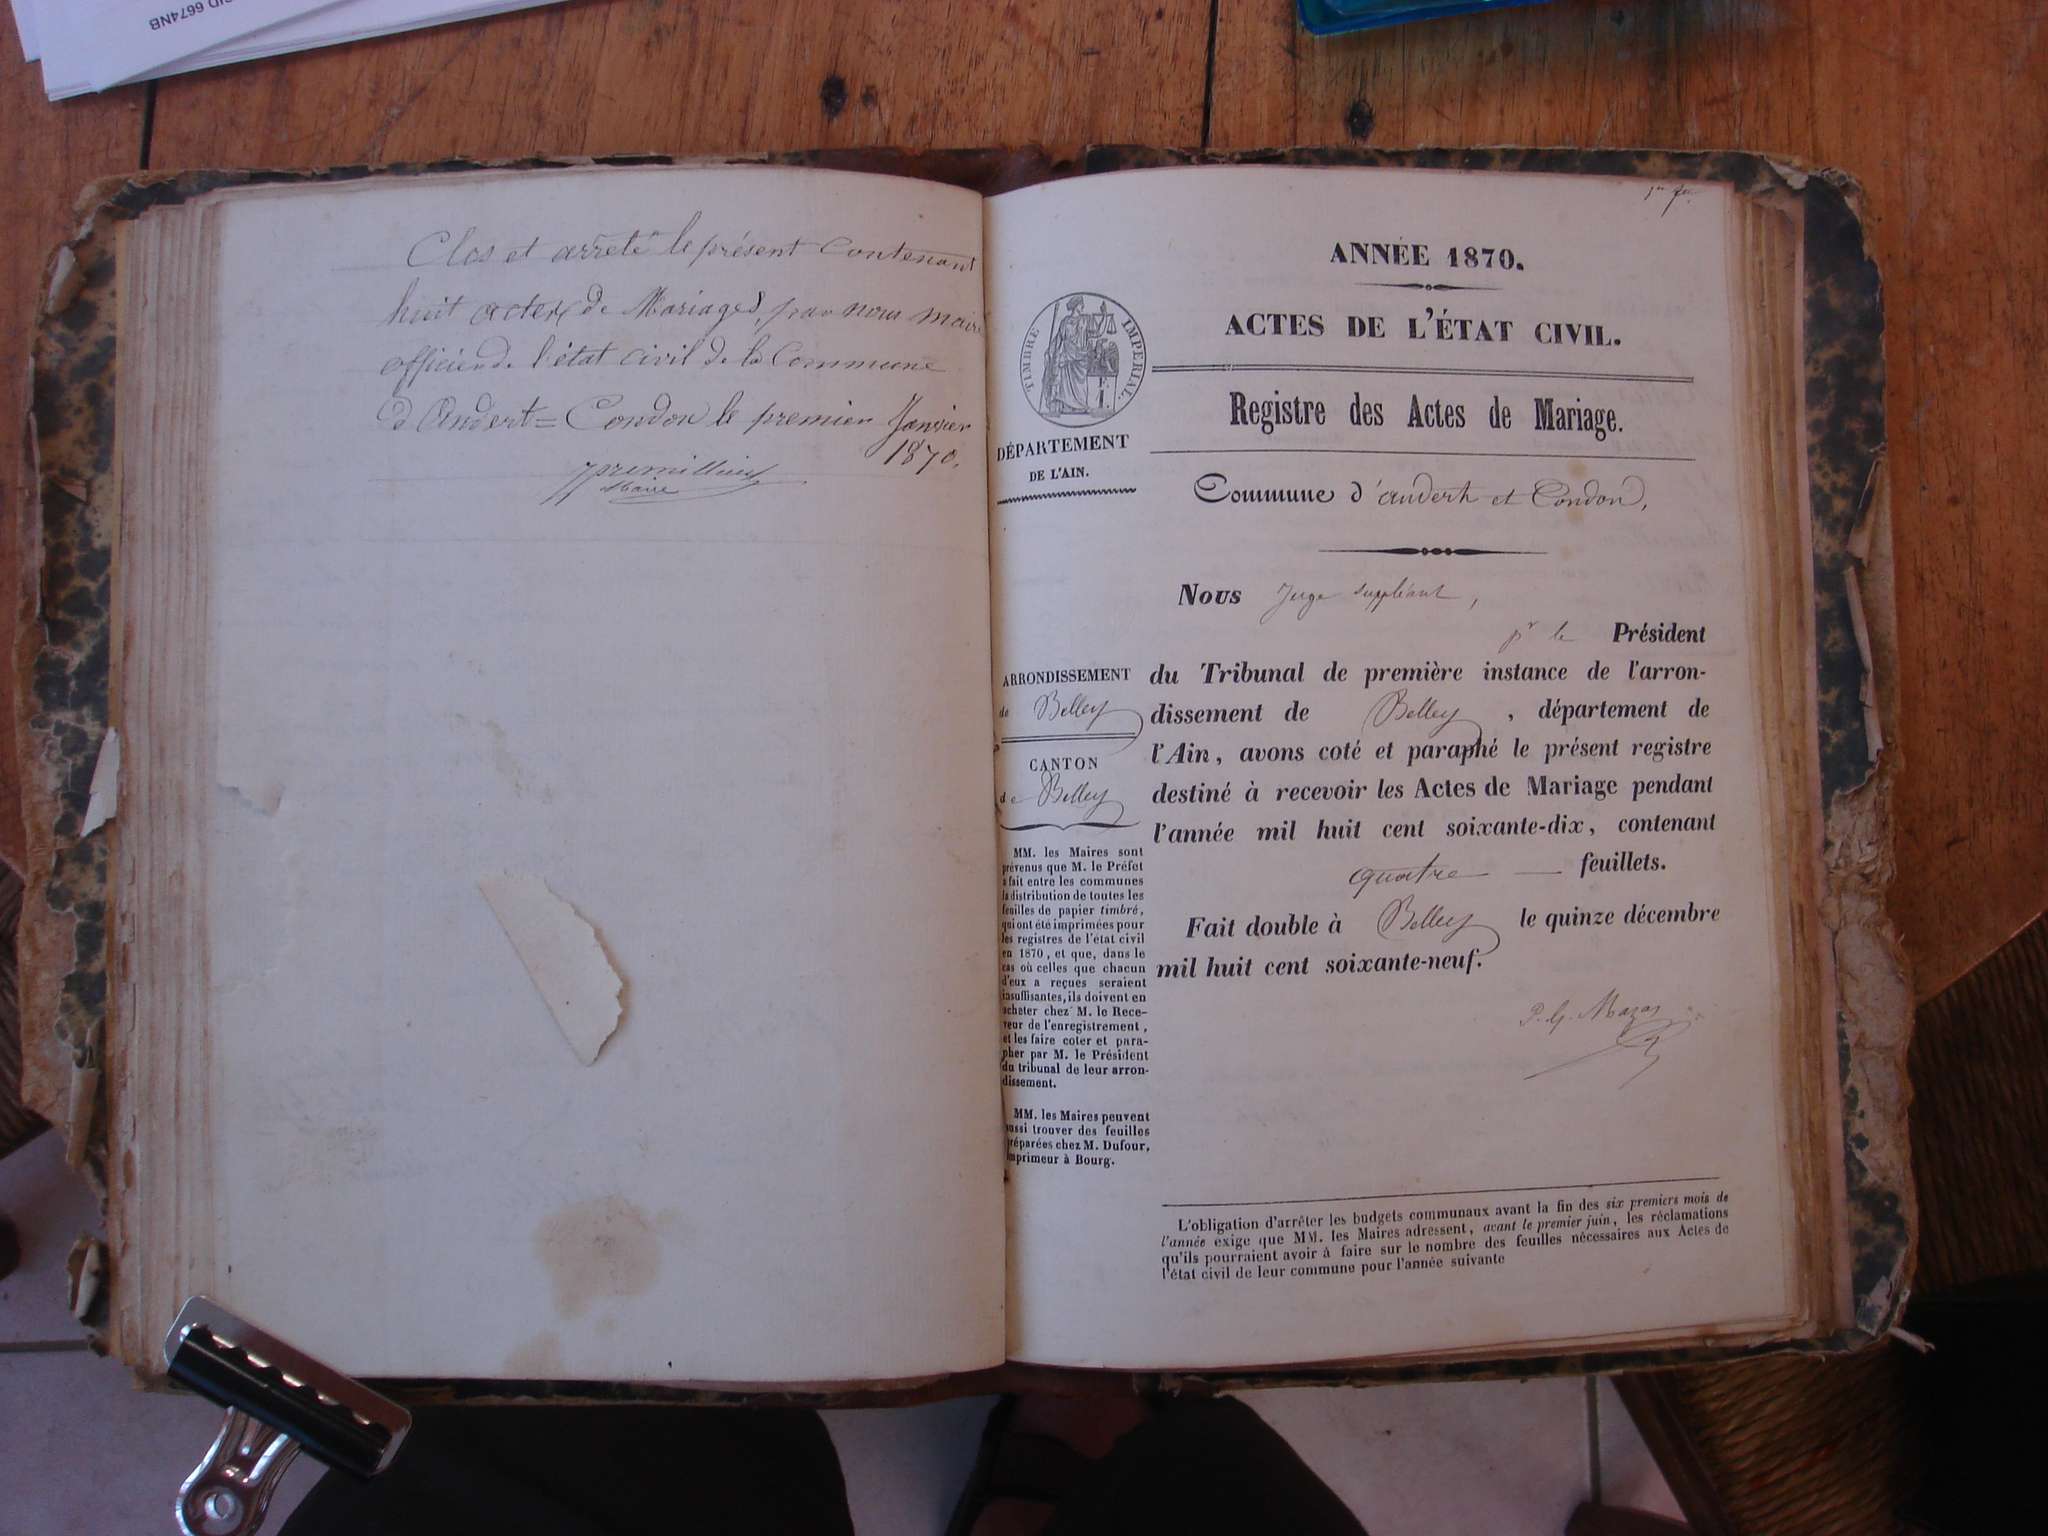 6674NB
Clos et arrêté le présent Contenant
huit actes de Mariages, par nous maire
officier de l'état civil de la Commune
d'Andert = Condon le premier Janvier
1870.
Maire
ANNÉE 1870.
ACTES DE L'ÉTAT CIVIL.
TIMBRE IMPÉRIAL.
Registre des Actes de Mariage.
DÉPARTEMENT
DE L'AIN.
Commune d'andert et Condon,
Nous Juge suppléant,
pr le Président
du Tribunal de première instance de l'arron-
dissement de Belley, département de
l'Ain, avons coté et paraphé le présent registre
destiné à recevoir les Actes de Mariage pendant
l'année mil huit cent soixante-dix, contenant
quatre — feuillets.
Fait double à Belley le quinze décembre
mil huit cent soixante-neuf.
P. G. Mazas
ARRONDISSEMENT
de Belley
CANTON
de Belley
MM. les Maires sont
prévenus que M. le Préfet
a fait entre les communes
la distribution de toutes les
feuilles de papier timbré,
qui ont été imprimées pour
les registres de l'état civil
en 1870, et que, dans le
cas où celles que chacun
d'eux a reçues seraient
insuffisantes, ils doivent en
acheter chez M. le Rece-
veur de l'enregistrement,
et les faire coter et para-
pher par M. le Président
du tribunal de leur arron-
dissement.
MM. les Maires peuvent
aussi trouver des feuilles
préparées chez M. Dufour,
imprimeur à Bourg.
L'obligation d'arrêter les budgets communaux avant la fin des six premiers mois de
l'année exige que MM. les Maires adressent, avant le premier juin, les réclamations
qu'ils pourraient avoir à faire sur le nombre des feuilles nécessaires aux Actes de
l'état civil de leur commune pour l'année suivante